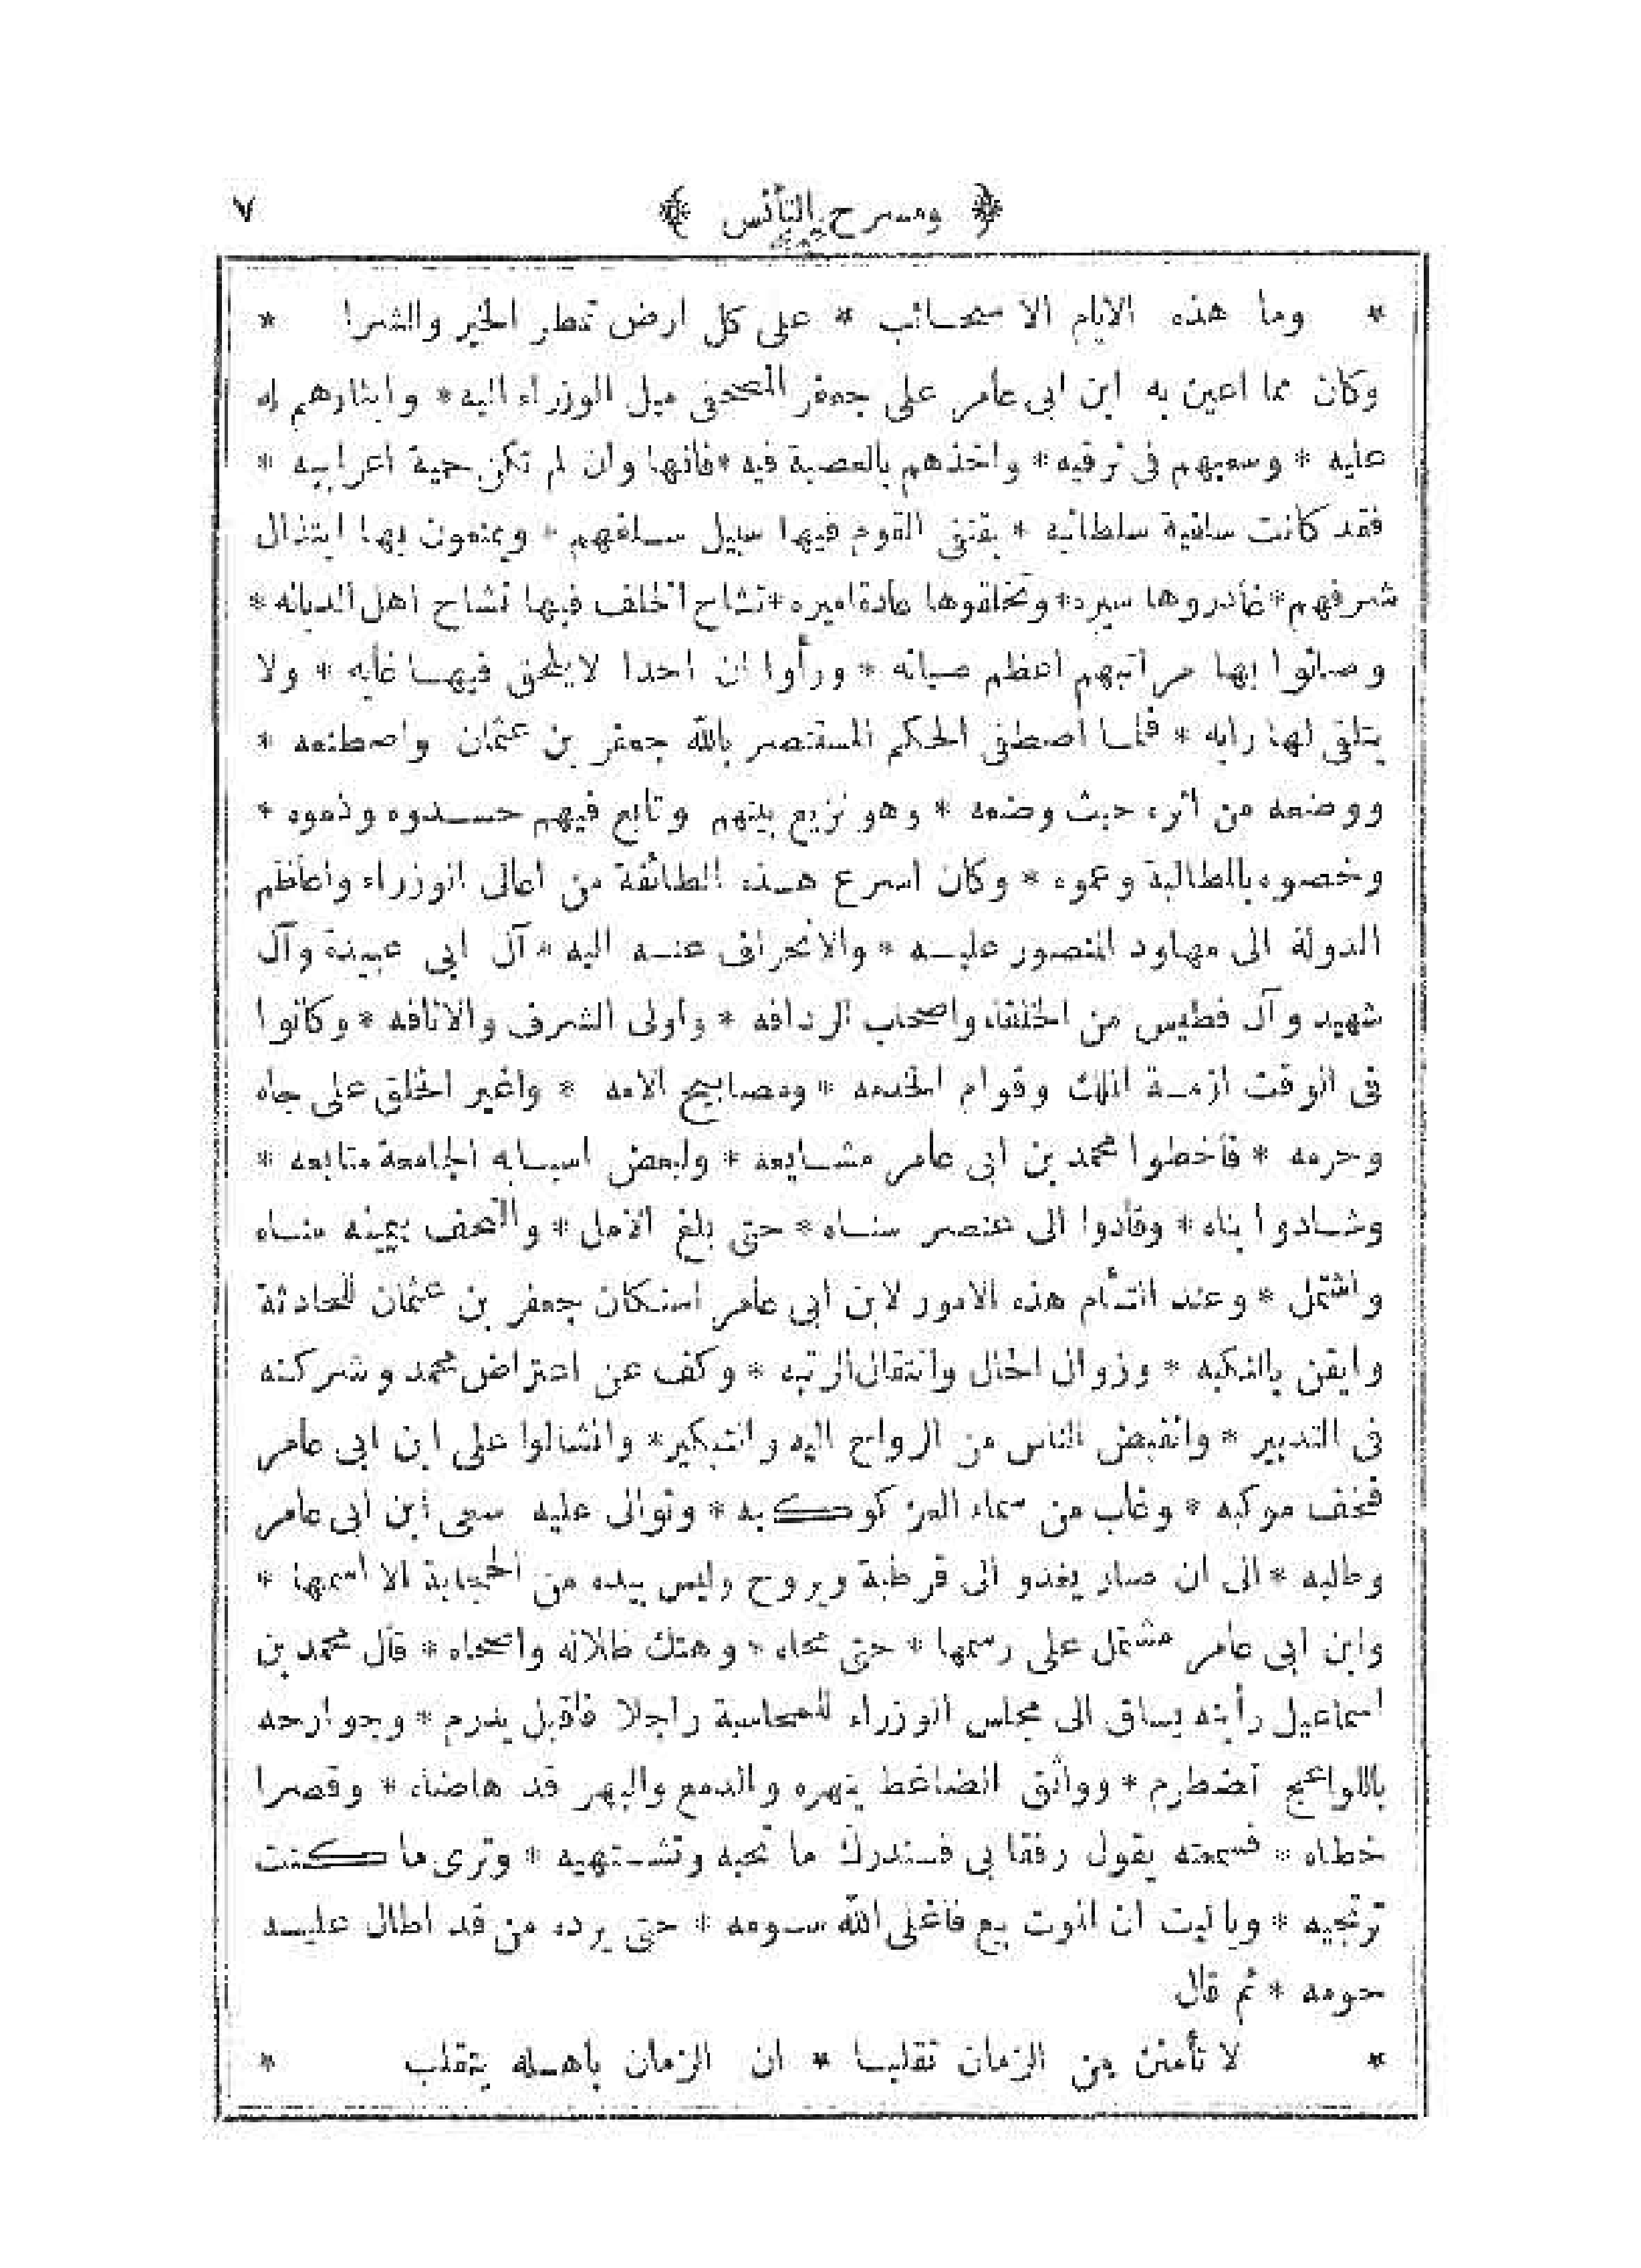 ﴿ ومسرح التأنس ﴾ ٧
* وما هذه الايام الا سحائب * على كل ارض تمطر الخير والشرا *
وكان مما اعين به ابن ابى عامر على جعفر المصحفى ميل الوزراء اليه * وايثارهم له
عليه * وسعيهم فى ترقيه * واخذهم بالعصبية فيه * فانها وان لم تكن حمية اعرابيه *
فقد كانت سلفية سلطانيه * يقتفى القوم فيها سبيل سلفهم * ويمنعون بها ابتذال
شرفهم * غادروها سيره * وتخلقوها عادة اميره * تشاح الخلف فيها تشاح اهل الديانه *
وصانوا بها مراتبهم اعظم صيانه * ورأوا ان احدا لا يلحق فيها غايه * ولا
يتلقى لها رايه * فلما اصطفى الحكم المستنصر بالله جعفر بن عثمان واصطنعه *
ووضعه من اثره حيث وضعه * وهو نزيع بينهم وتابع فيهم حسدوه وذموه *
وخصوه بالمطالبة وعموه * وكان اسرع هذه الطائفة من اعالى الوزراء واعاظم
الدولة الى مهاود المنصور عليه * والانحراف عنه اليه * آل ابى عبيدة وآل
شهيد وآل فطيس من الخلفاء واصحاب الردافه * واولى الشرف والانافه * وكانوا
فى الوقت ازمة الملك وقوام الخدمه * ومصابيح الامه * واغير الخلق على جاه
وحرمه * فأحظوا محمد بن ابى عامر مشايعه * ولبعض اسبابه الجامعة متابعه *
وشادوا بناه * وقادوا الى عنصر سناه * حتى بلغ الامل * والتحف بيمينه مناه
واشتمل * وعند التئام هذه الامور لابن ابى عامر استكان جعفر بن عثمان للحادثة
وايقن بالنكبه * وزوال الحال وانتقال الرتبه * وكف عن اعتراض محمد وشركته
فى التدبير * وانقبض الناس من الرواح اليه والتبكير * وانثالوا على ابن ابى عامر
فخف موكبه * وغاب من سماء العز كوكبه * وتوالى عليه سعى ابن ابى عامر
وطلبه * الى ان صار يغدو الى قرطبة ويروح وليس بيده من الحجابة الا اسمها *
وابن ابى عامر مشتمل على رسمها * حتى محاه * وهتك ظلاله واضحاه * قال محمد بن
اسماعيل رأيته يساق الى مجلس الوزراء للمحاسبة راجلا فاقبل يدرم * وجوارحه
باللواعج تضطرم * وواثق الضاغط ينهره والدمع والبهر قد هاضاه * وقصرا
خطاه * فسمعته يقول رفقا بى فستدرك ما تحبه وتشتهيه * وترى ما كنت
ترتجيه * ويا ليت ان الموت بيع فاغلى الله سومه * حتى يرده من قد اطال عليه
حومه * ثم قال
* لا تأمنن من الزمان تقلبا * ان الزمان باهله يتقلب *